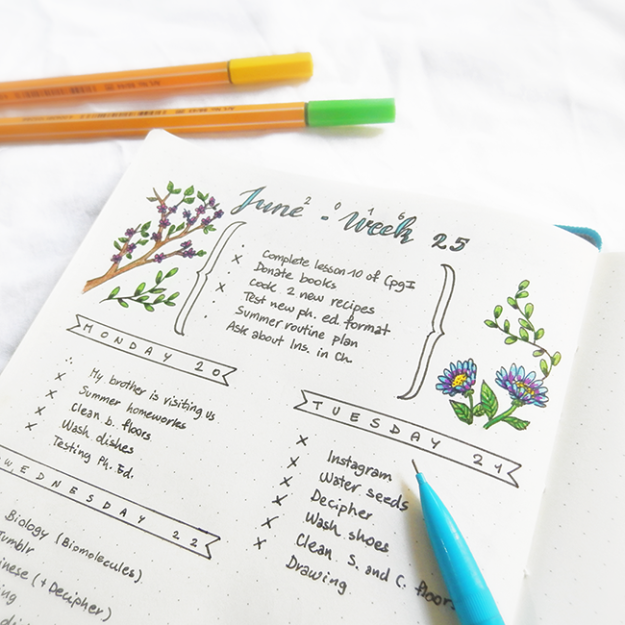 June 2016 - Week 25
Complete lesson 10 of CpgI
Donate books
Cook 2 new recipes
Test new ph. ed. format
Summer routine plan
Ask about Ins. in Ch.
MONDAY 20
My brother is visiting us
Summer homeworks
Clean b. floors
Wash dishes
Testing Ph. Ed.
TUESDAY 21
Instagram
Water seeds
Decipher
Wash shoes
Clean S. and C. floors
Drawing
WEDNESDAY 22
Biology (Biomolecules)
Tumblr
(+ Decipher)